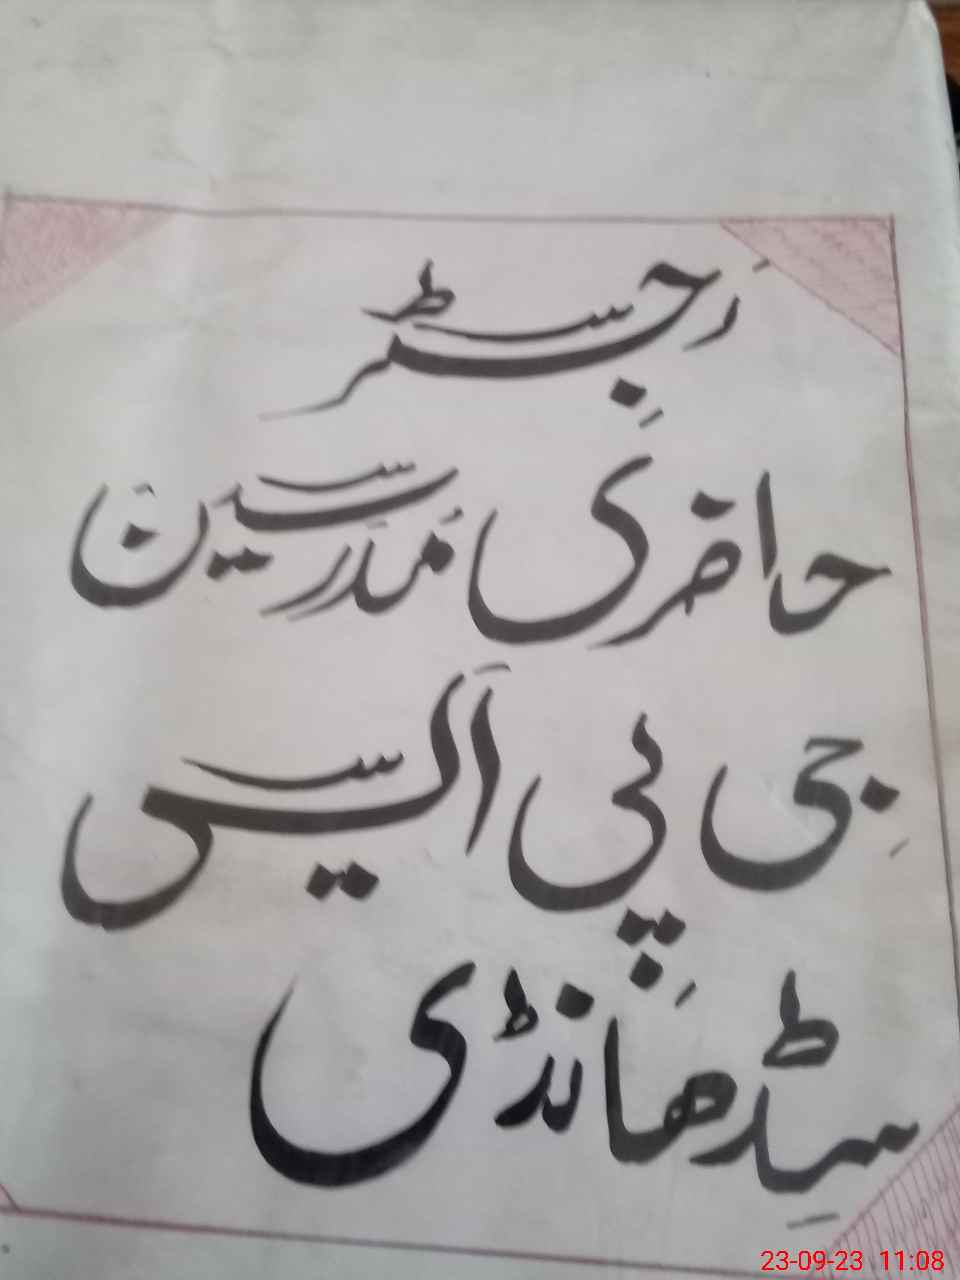 رَجِسٹر
حاضری مُدَرسین
جِی پِی اَیس
سِڈھانڈی
23-09-23 11:08